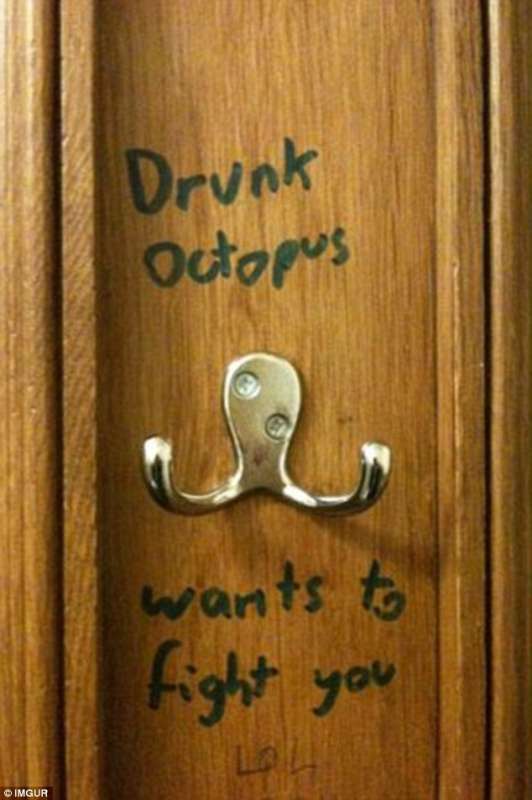 Drunk
Octopus
wants to
fight you
LOL
© IMGUR